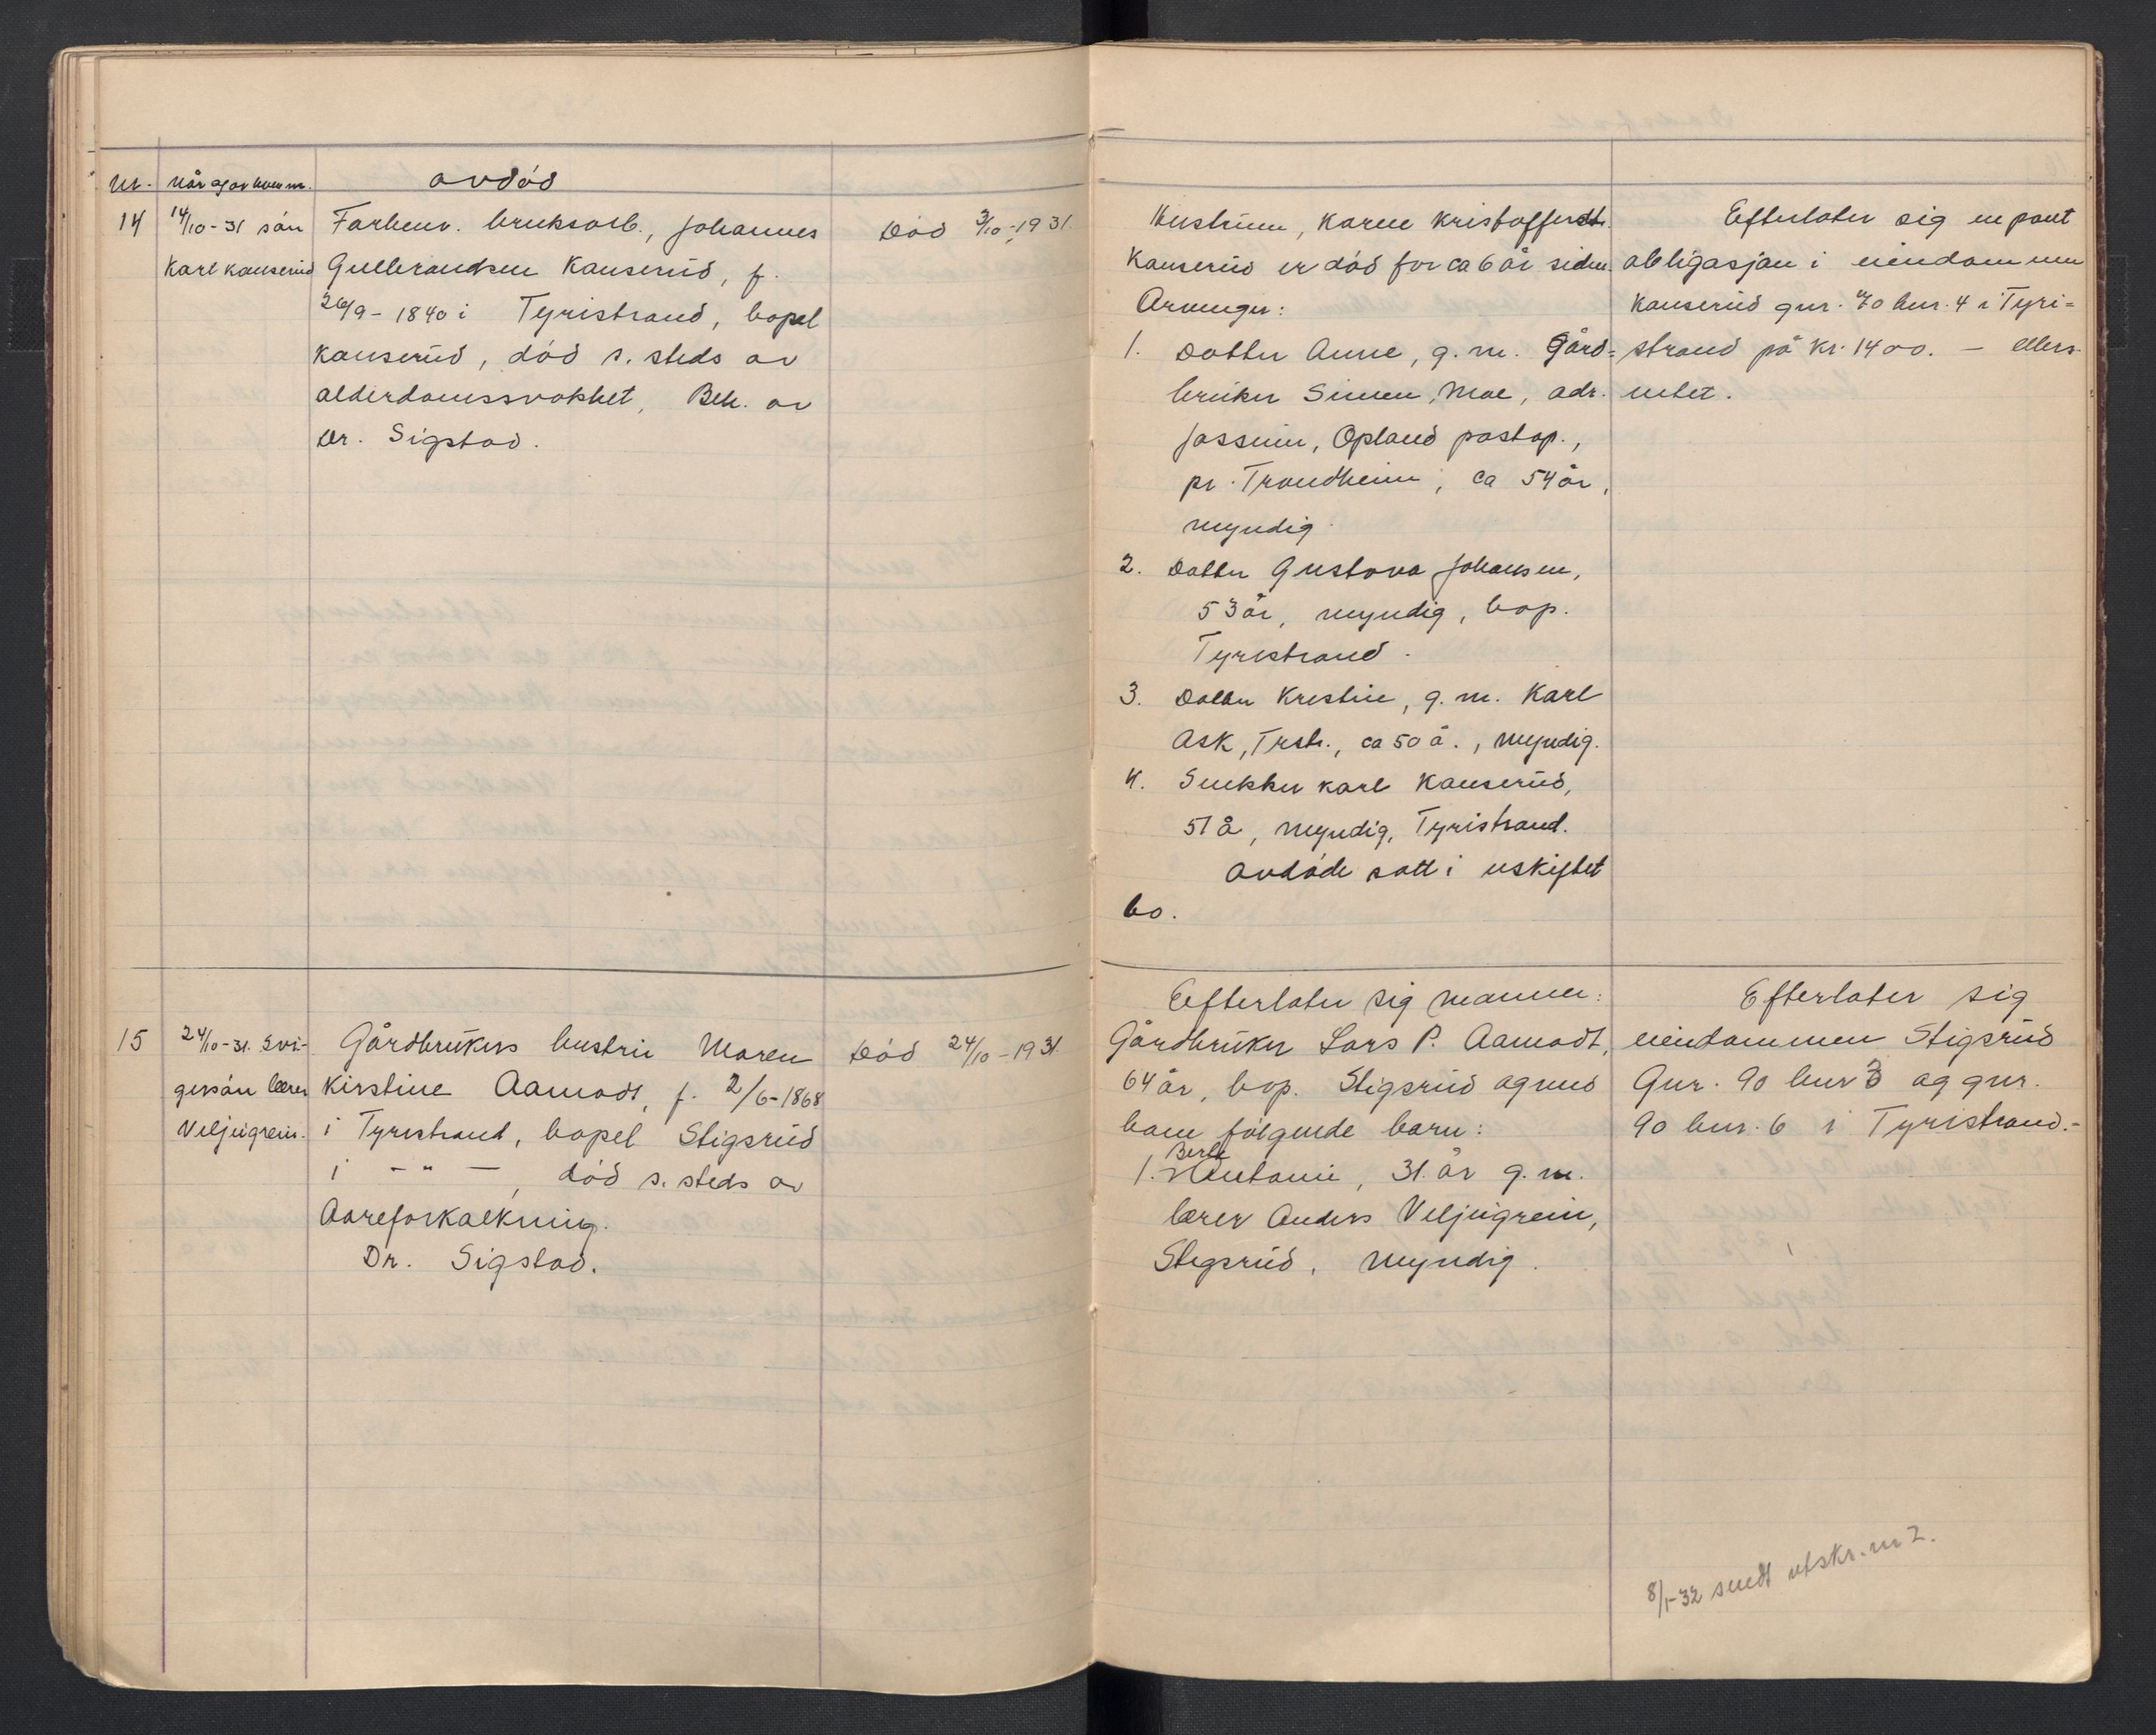 Nr. Når og av hvem m. avdød
14 14/10-31 søn Forhenv. bruksarb., Johannes Død 3/10-1931.
Karl Kanserud Gulbrandsen Kanserud, f.
26/9-1840 i Tyristrand, bopel
Kanserud, død s. steds av
alderdomssvakhet, Beh. av
Dr. Sigstad.
15 24/10-31. Svi- Gårdbrukers hustru Maren Død 24/10-1931.
gersøn lærer Kirstine Aamodt, f. 2/6-1868
Veljugrein. i Tyristrand, bopel Stigsrud
i -"-, død s. steds av
Aareforkalkning.
Dr. Sigstad.
Hustruen, Karen Kristoffersdtr.
Kanserud er død for ca 6 år siden.
Arvinger:
1. Datter Anne, g. m. Gård=
bruker Simen Moe, adr.
Jassum, Opland postop.,
pr. Trondheim, ca 54 år,
myndig.
2. Datter Gustava Johansen,
53 år, myndig, bop.
Tyristrand.
3. Datter Kristine, g. m. Karl
Ask, Trstr., ca 50 å., myndig.
4. Snekker Karl Kanserud,
51 å, myndig, Tyristrand.
Avdøde satt i uskiftet
bo.
Efterlater sig en pant
obligasjon i eiendommen
Kanserud gnr. 70 bnr. 4 i Tyri=
strand på kr. 1400. - ellers
intet.
Efterlater sig mannen:
Gårdbruker Lars P. Aamodt,
64 år, bop. Stigsrud og med
ham følgende barn:
Berte
1. Antonie, 31. år g. m.
lærer Anders Veljugrein,
Stigsrud, myndig.
Efterlater sig
eiendommen Stigsrud
Gnr. 90 bnr 3 og gnr.
90 bnr. 6 i Tyristrand.-
8/1-32 sendt utskr. nr 2.